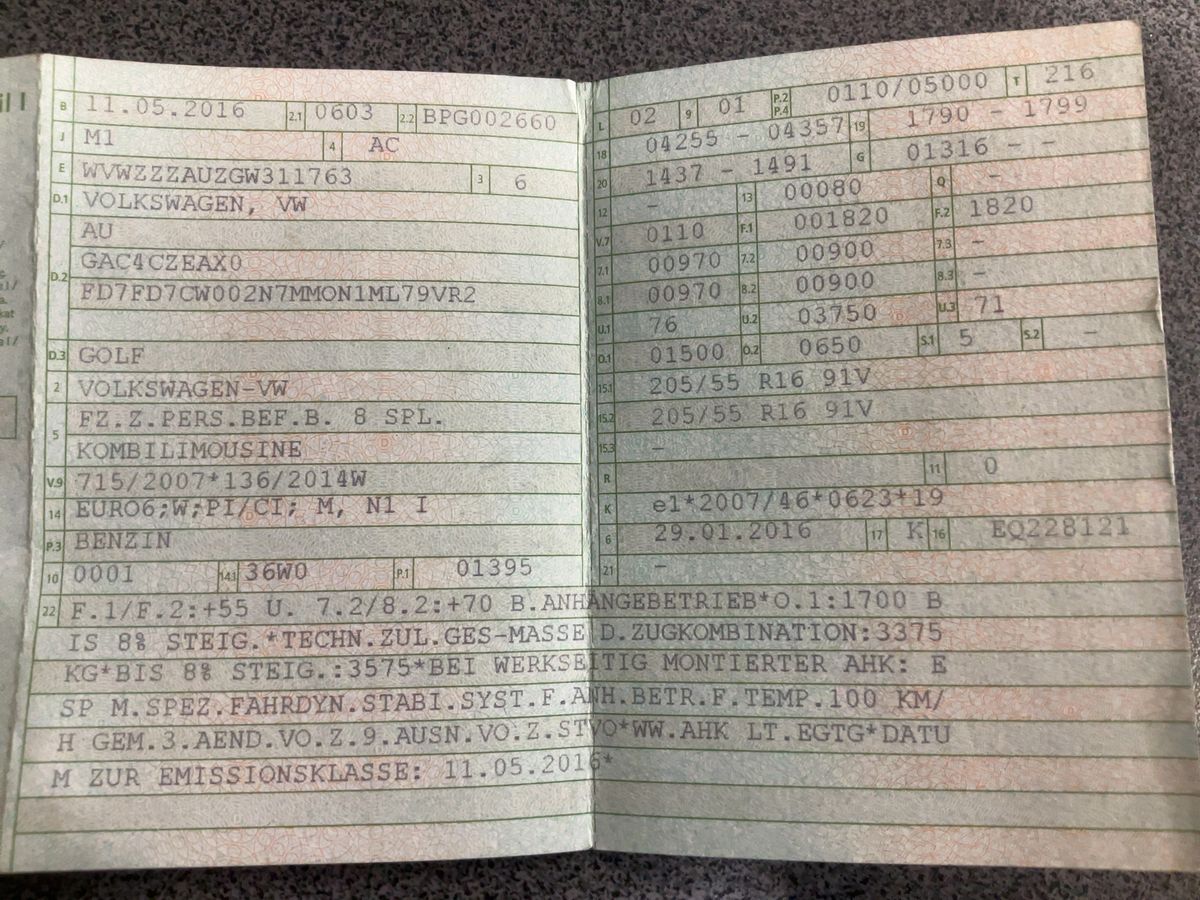 il I
B 11.05.2016 2.1 0603 2.2 BPG002660
J M1 4 AC
E WVWZZZAUZGW311763 3 6
D.1 VOLKSWAGEN, VW
AU
D.2 GAC4CZEAX0
FD7FD7CW002N7MMON1ML79VR2
D.3 GOLF
2 VOLKSWAGEN-VW
FZ.Z.PERS.BEF.B. 8 SPL.
5 KOMBILIMOUSINE
V.9 715/2007*136/2014W
14 EURO6;W;PI/CI; M, N1 I
P.3 BENZIN
10 0001 14.1 36W0 P.1 01395
L 02 9 01 P.2 P.4 0110/05000 T 216
18 04255 - 04357 19 1790 - 1799
20 1437 - 1491 G 01316 - -
12 - 13 00080 Q -
V.7 0110 F.1 001820 F.2 1820
7.1 00970 7.2 00900 7.3 -
8.1 00970 8.2 00900 8.3 -
U.1 76 U.2 03750 U.3 71
O.1 01500 O.2 0650 S.1 5 S.2 -
15.1 205/55 R16 91V
15.2 205/55 R16 91V
15.3 -
R 11 0
K e1*2007/46*0623*19
6 29.01.2016 17 K 16 EQ228121
21 -
22 F.1/F.2:+55 U. 7.2/8.2:+70 B.ANHANGEBETRIEB*O.1:1700 B
IS 8% STEIG.*TECHN.ZUL.GES-MASSE D.ZUGKOMBINATION:3375
KG*BIS 8% STEIG.:3575*BEI WERKSEITIG MONTIERTER AHK: E
SP M.SPEZ.FAHRDYN.STABI.SYST.F.ANH.BETR.F.TEMP.100 KM/
H GEM.3.AEND.VO.Z.9.AUSN.VO.Z.STVO*WW.AHK LT.EGTG*DATU
M ZUR EMISSIONSKLASSE: 11.05.2016*